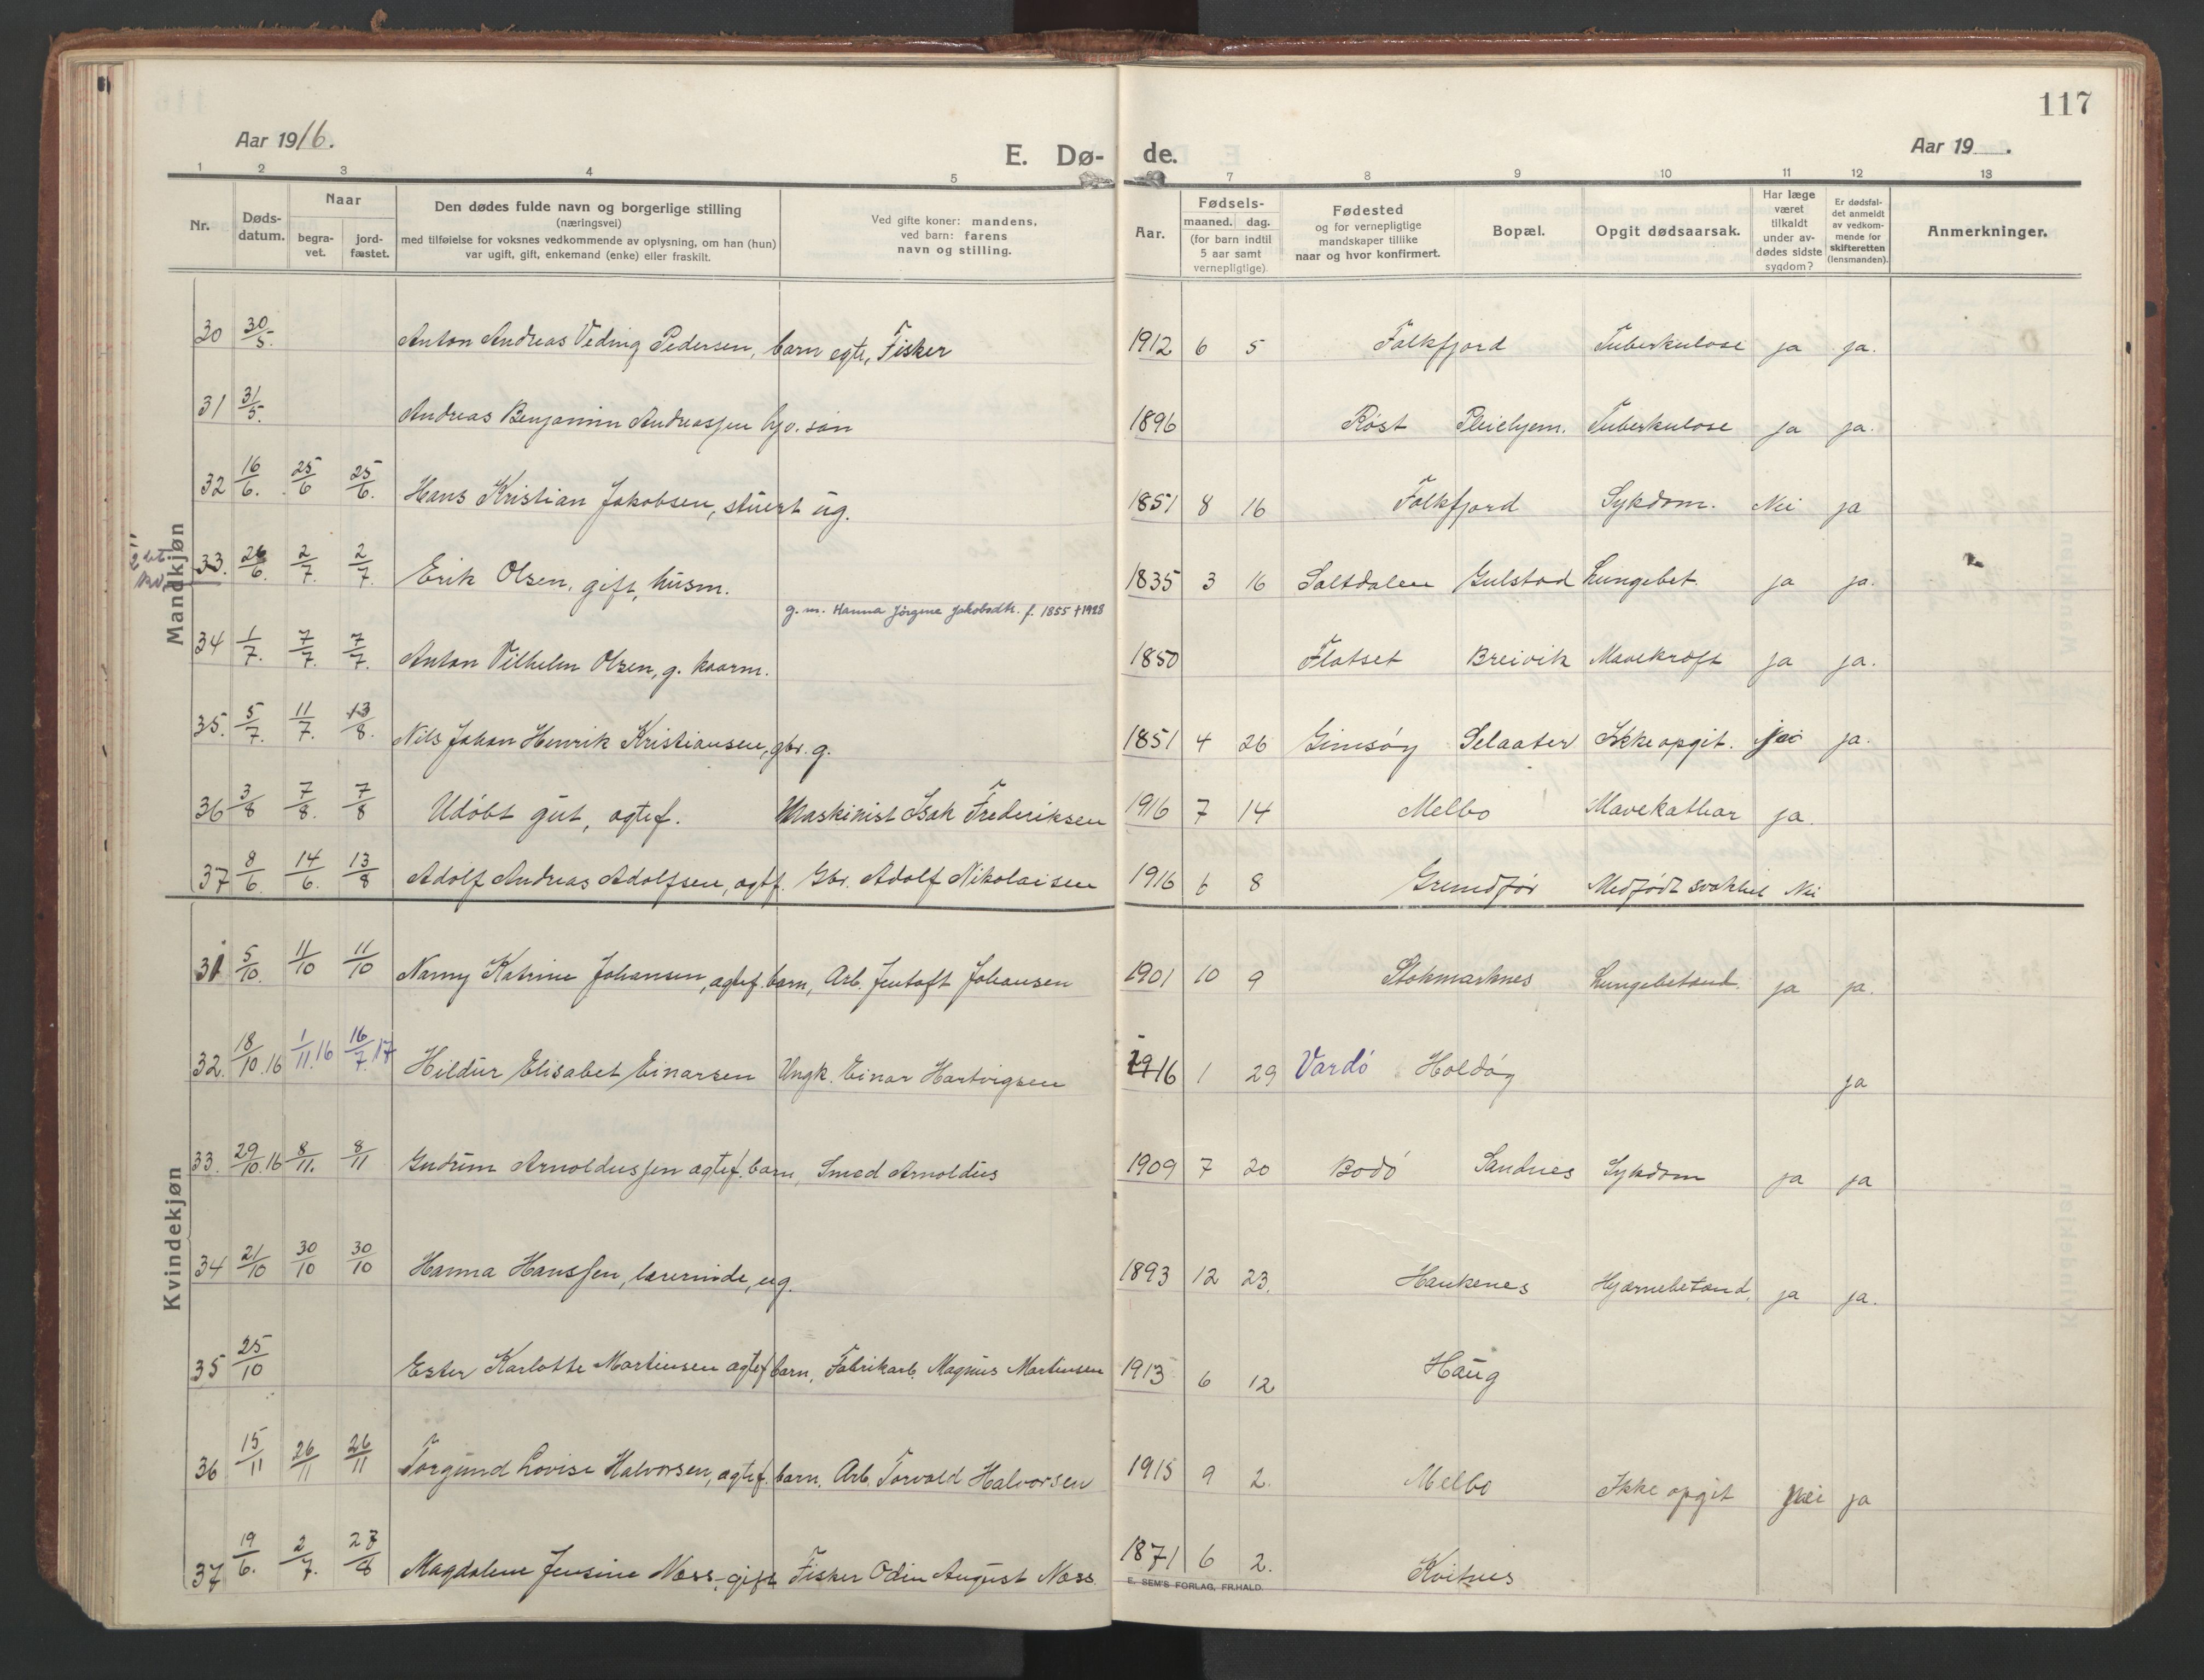 117
Aar 1916.
E. Dø- de.
Aar 19 .
1 2 3 4 5 7 8 9 10 11 12 13
Nr.
Døds-
datum.
Naar
begra-
vet.
jord-
fæstet.
Den dødes fulde navn og borgerlige stilling
(næringsvei)
med tilføielse for voksnes vedkommende av oplysning, om han (hun)
var ugift, gift, enkemand (enke) eller fraskilt.
Ved gifte koner: mandens,
ved barn: farens
navn og stilling.
Aar.
Fødsels-
maaned. dag.
(for barn indtil
5 aar samt
vernepligtige)
Fødested
og for vernepligtige
mandskaper tillike
naar og hvor konfirmert.
Bopæl.
Opgit dødsaarsak.
Har læge
været
tilkaldt
under av-
dødes sidste
sygdom?
Er dødsfal-
det anmeldt
av vedkom-
mende for
skifteretten
(lensmanden).
Anmerkninger.
Mandkjøn
30 30/5. Anton Andreas Veding Pedersen, barn egte, Fisker 1912 6 5 Falkfjord Tuberkulose ja ja.
31 31/5. Andreas Benjamin Andreassen søn 1896 Røst Pleiehjem. Tuberkulose ja ja.
32 16/6. 25/6 25/6. Hans Kristian Jakobsen, stuert ug. 1851 8 16 Falkfjord Sykdom. Nei ja
33. 26/6. 2/7. 2/7. Erik Olsen, gift, husm. 1835 3 16 Saltdalen Gulstad Lungebet. ja ja.
g. m. Hanna Jørgine Jakobsdtr. f. 1855 † 1928
34 1/7. 7/7. 7/7. Anton Vilhelm Olsen, g. kaarm. 1850 Flatset Breivik Mavekræft ja ja.
35. 5/7. 11/7. 13/8. Nils Johan Henrik Kristiansen, gbr. g. 1851 4 26 Gimsøy Selaater Ikke opgit. ja.
36 3/8 7/8. 7/8 Udøbt gut, egtef. Maskinist Isak Frederiksen 1916 7 14 Melbo Mavekathar ja.
37 8/6. 14/6. 13/8 Adolf Andreas Adolfsen, egtf. Gbr. Adolf Nikolaisen 1916 6 8 Grundfør Medfødt svakhet Nei
Kvindekjøn
31 5/10. 11/10 11/10 Nanny Katrine Johansen, egtef. barn, Arb. Jentoft Johansen 1901 10 9 Stokmarknes Lungebetænd. ja ja.
32. 18/10.16 1/11.16 16/7.17 Hildur Elisabet Einarsen Ungk. Einar Hartvigsen 1916 1 29 Vardø Holdøy ja
33. 29/10.16 8/11. 8/11 Gudrun Arnoldussen egtef. barn, Smed Arnoldus 1909 7 20 Bodø Sandnes Sykdom ja ja
34 21/10 30/10 30/10 Hanna Hanssen, lærerinde, ug. 1893 12 23. Haukenes Hjærnebetænd. ja ja.
35 25/10 Ester Karlotte Martinsen egtef barn, Fabrikarb. Magnus Martinsen 1913 6 12 Haug
36 15/11 26/11 26/11 Torgund Lovise Halvorsen, egtef. barn. Arb. Torvald Halvorsen 1915 9 2. Melbo Ikke opgit Nei ja
37 19/6. 2/7. 27/8 Magdalene Jensine Næss, gift Fisker Odin August Næss 1871 6 2. Kvitnes
E. SEM'S FORLAG, FR.HALD.